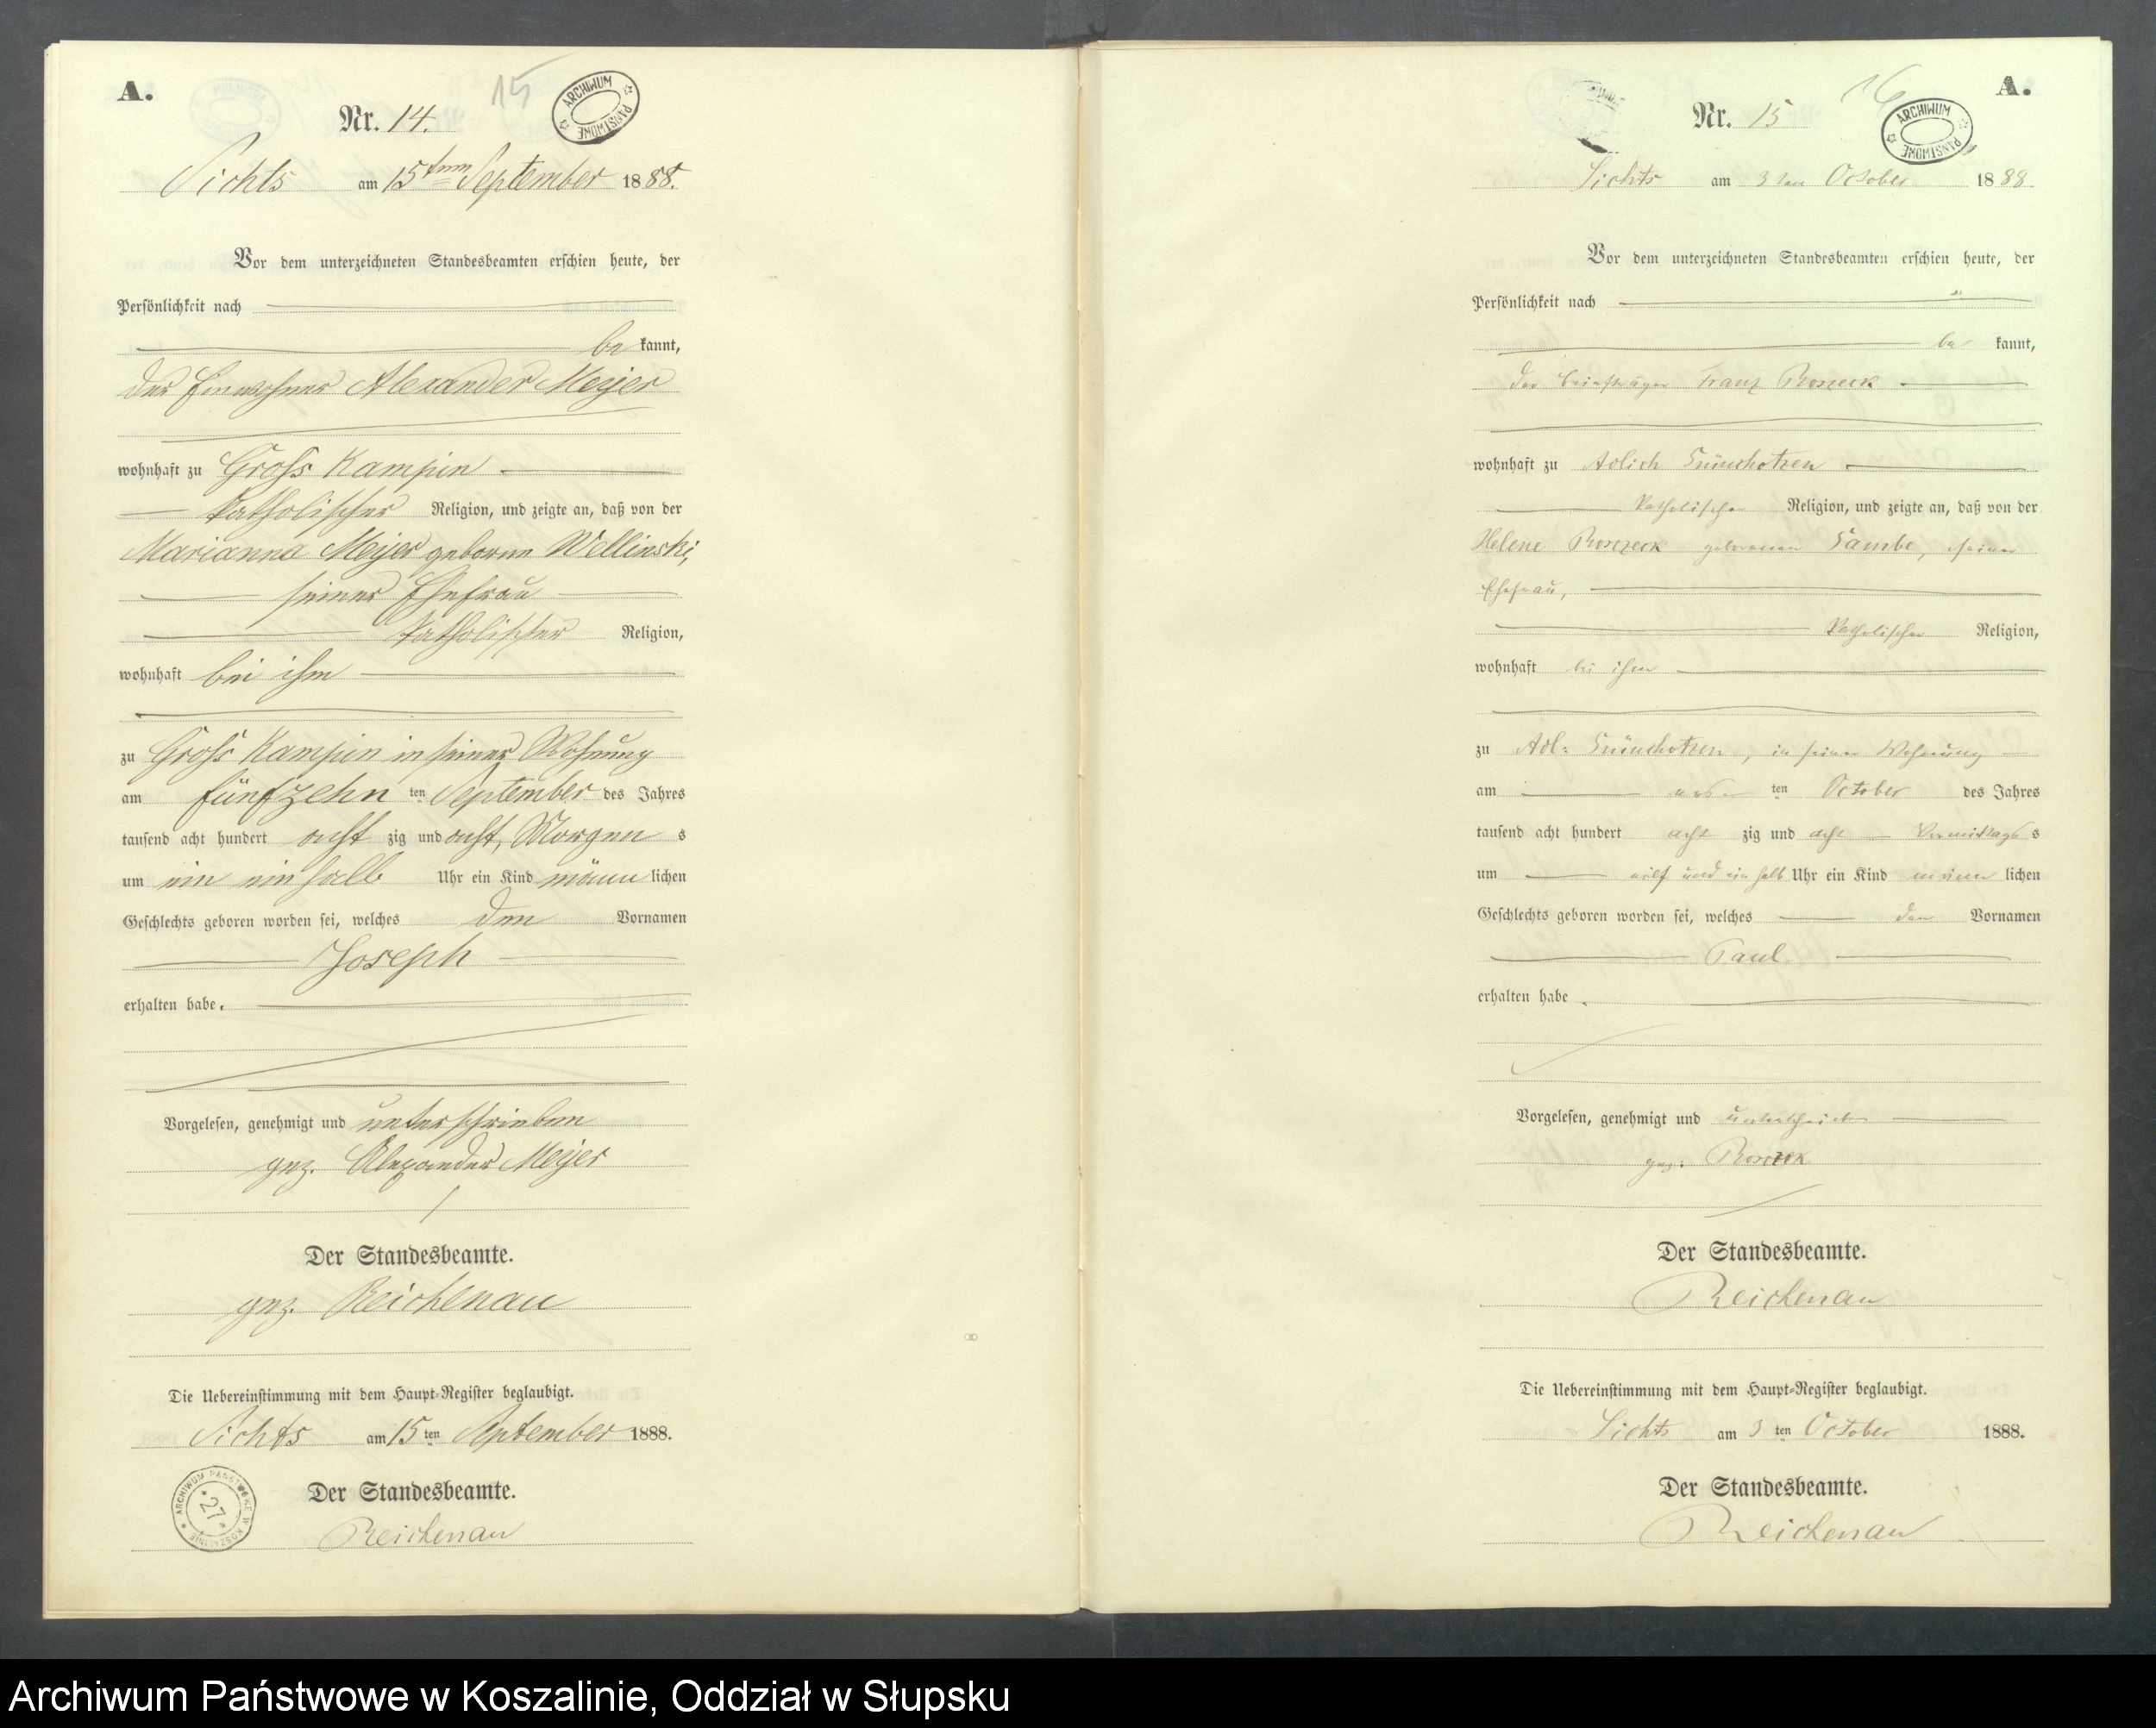 A.
15
Nr. 14.
ARCHIWUM PAŃSTWOWE
Sichts am 15ten September 1888.
Vor dem unterzeichneten Standesbeamten erschien heute, der
Persönlichkeit nach
be kannt,
der Einwohner Alexander Meyer
wohnhaft zu Gross Kampin
katholischer Religion, und zeigte an, daß von der
Marianna Meyer geborne Wellinski,
seiner Ehefrau
katholischer Religion,
wohnhaft bei ihm
zu Gross Kampin in seiner Wohnung
am fünfzehn ten September des Jahres
tausend acht hundert acht zig und acht, Morgen s
um ein einhalb Uhr ein Kind männ lichen
Geschlechts geboren worden sei, welches den Vornamen
Joseph
erhalten habe.
Vorgelesen, genehmigt und unterschrieben
gez. Alexander Meyer
Der Standesbeamte.
gez. Reichenau
Die Uebereinstimmung mit dem Haupt-Register beglaubigt.
Sichts am 15 ten September 1888.
Der Standesbeamte.
Reichenau
ARCHIWUM PAŃSTWOWE W KOSZALINIE
27
A.
16
Nr. 15
ARCHIWUM PAŃSTWOWE
Sichts am 3ten October 1888
Vor dem unterzeichneten Standesbeamten erschien heute, der
Persönlichkeit nach
be kannt,
der Briefträger Franz
wohnhaft zu Adlich
katholischer Religion, und zeigte an, daß von der
Helene geborenen seiner
Ehefrau,
katholischer Religion,
wohnhaft bei ihm
zu Adl: in seiner Wohnung
am ersten October des Jahres
tausend acht hundert acht zig und acht Vormittags s
um elf und ein halb Uhr ein Kind männ lichen
Geschlechts geboren worden sei, welches den Vornamen
Paul
erhalten habe.
Vorgelesen, genehmigt und unterschrieben
gez:
Der Standesbeamte.
Reichenau
Die Uebereinstimmung mit dem Haupt-Register beglaubigt.
Sichts am 3 ten October 1888.
Der Standesbeamte.
Reichenau
Archiwum Państwowe w Koszalinie, Oddział w Słupsku